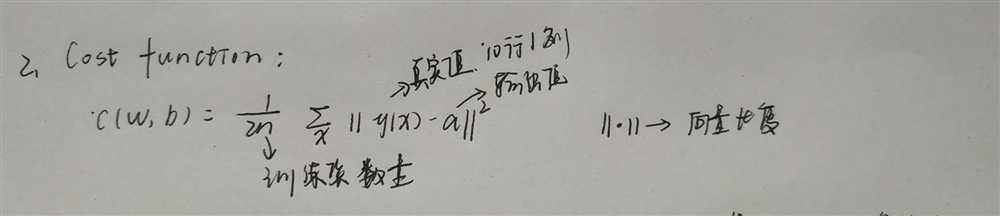 2. Cost function:
C(w,b) = \frac{1}{2n} \sum_x ||y(x) - a||^2
→真实值:10行1列
→输出值
训练集数量
||·||→向量长度